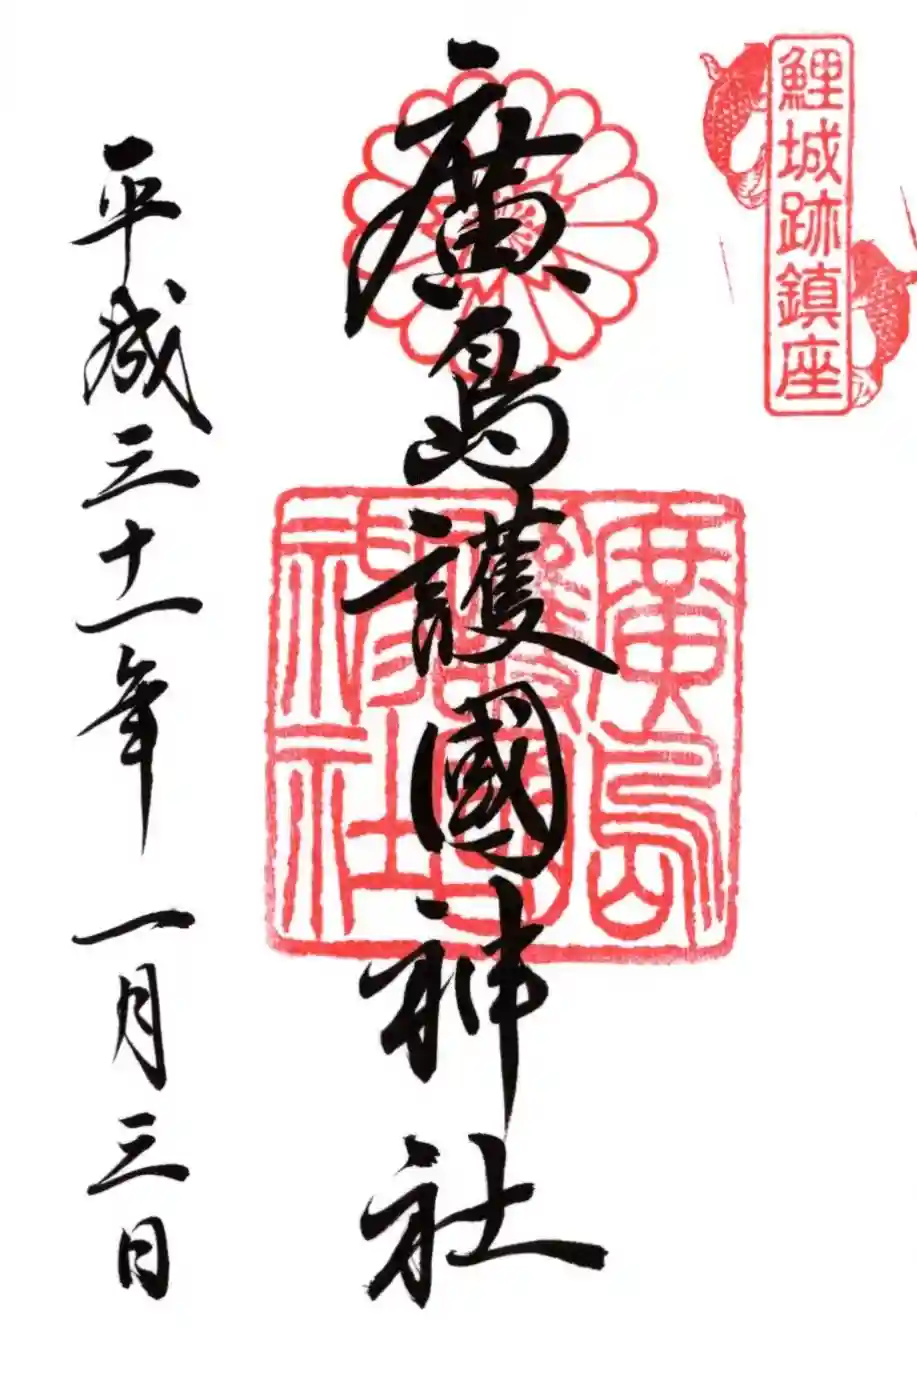 鯉城跡鎮座
廣島護國神社
廣島
護國
神社
平成三十一年一月三日